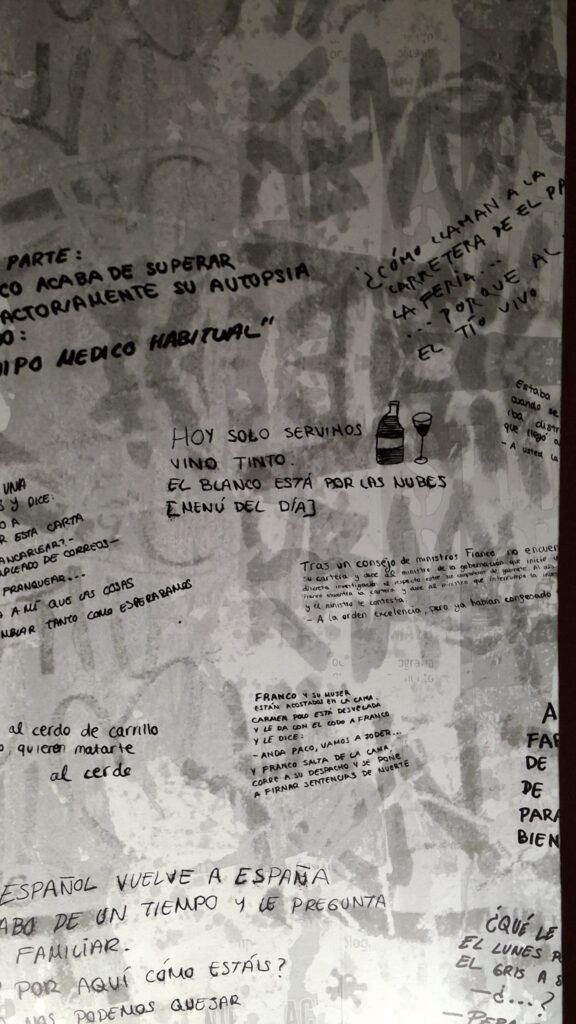 PARTE:
CO ACABA DE SUPERAR
ACTORIAMENTE SU AUTOPSIA
DO:
IPO MEDICO HABITUAL"
¿CÓMO LLAMAN A LA
CARRETERA DE EL P
LA FERIA...
... PORQUE AL
EL TÍO VIVO
Estaba
cuando se
iba distr
que llegó a
- A usted la
HOY SOLO SERVIMOS
VINO TINTO.
EL BLANCO ESTÁ POR LAS NUBES
[MENÚ DEL DÍA]
UNA
S Y DICE:
O A
R ESTA CARTA
PLEADO DE CORREOS-
FRANQUEAR...
A MÍ QUE LAS COSAS
MBIAR TANTO COMO ESPERÁBAMOS
Tras un consejo de ministros Franco no encuen
su cartera y dice al ministro de la gobernación que inicie u
discreta investigación al respecto entre sus compañeros de gabinete. Al
Franco encuentra la cartera y dice al ministro que interrumpa la
y el ministro le contesta:
- A la orden excelencia, pero ya habían confesado
al cerdo de carrillo
o, quieren matarte
al cerdo
FRANCO Y SU MUJER
ESTÁN ACOSTADOS EN LA CAMA.
CARMEN POLO ESTÁ DESVELADA
Y LE DA CON EL CODO A FRANCO
Y LE DICE:
- ANDA PACO, VAMOS A JODER...
Y FRANCO SALTA DE LA CAMA,
CORRE A SU DESPACHO Y SE PONE
A FIRMAR SENTENCIAS DE MUERTE
A
FAR
DE
DE
PARA
BIEN
ESPAÑOL VUELVE A ESPAÑA
ABO DE UN TIEMPO Y LE PREGUNTA
FAMILIAR.
POR AQUÍ CÓMO ESTÁIS?
NOS PODEMOS QUEJAR
¿QUÉ LE
EL LUNES P
EL GRIS A S
- ¿...?
- PERA